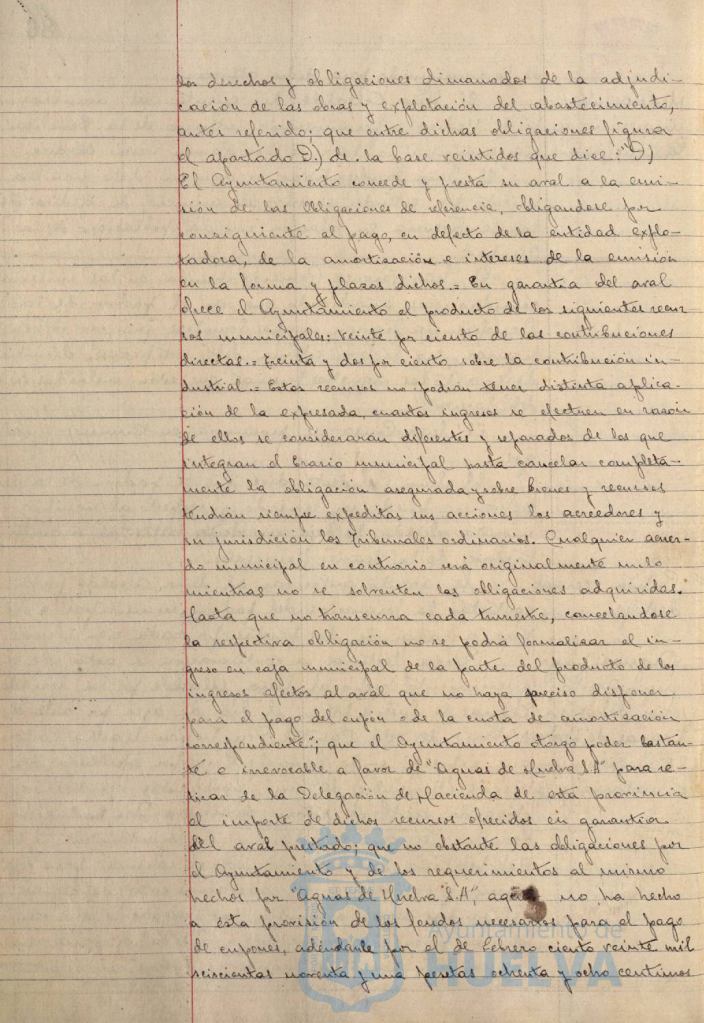 los derechos y obligaciones dimanados de la adjudi-
cación de las obras y explotación del abastecimiento,
antes referido; que entre dichas obligaciones figura
el apartado D.) de la base veintidos que dice: "D)
El Ayuntamiento concede y presta su aval a la emi-
sión de las Obligaciones de referencia, obligandose por
consiguiente al pago, en defecto de la entidad explo-
tadora, de la amortización e intereses de la emisión
en la forma y plazos dichos.= En garantia del aval
ofrece el Ayuntamiento el producto de los siguientes recur
sos municipales: Veinte por ciento de las contribuciones
directas.= Treinta y dos por ciento sobre la contribución in-
dustrial.= Estos recursos no podrán tener distinta aplica-
ción de la expresada, cuantos ingresos se efectuen en razón
de ellos se considerarán diferentes y separados de los que
integran el Erario municipal hasta cancelar completa-
mente la obligación asegurada y sobre bienes y recursos
tendrán siempre expeditas sus acciones los acreedores y
su jurisdición los Tribunales ordinarios. Cualquier acuer-
do municipal en contrario será originalmente nulo
mientras no se solventen las obligaciones adquiridas.
Hasta que no transcurra cada trimestre, cancelandose
la respectiva obligación no se podrá formalizar el in-
greso en caja municipal de la parte del producto de los
ingresos afectos al aval que no haya preciso disponer
para el pago del cupón o de la cuota de amortización
correspondiente"; que el Ayuntamiento otorgó poder bastan-
te e irrevocable a favor de "Aguas de Huelva S.A" para re-
ticar de la Delegación de Hacienda de esta provincia
el importe de dichos recursos ofrecidos en garantia
del aval prestado; que no obstante las obligaciones por
el Ayuntamiento y de los requerimientos al mismo
hechos por "Aguas de Huelva S.A", no ha hecho
a ésta provisión de los fondos necesarios para el pago
de cupones, adeudante por el de Febrero ciento veinte mil
seiscientas noventa y una pesetas ochenta y ocho centimos
Ayuntamiento de
HUELVA